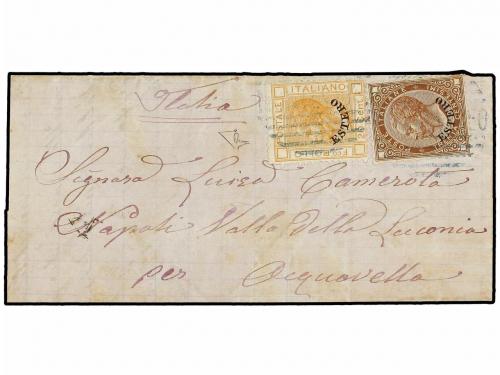 Italia
POSTALE ITALIANO
ESTERO
ESTERO
Signora Luisa Camerola
Napoli Vallo della Luconia
per Acquavella